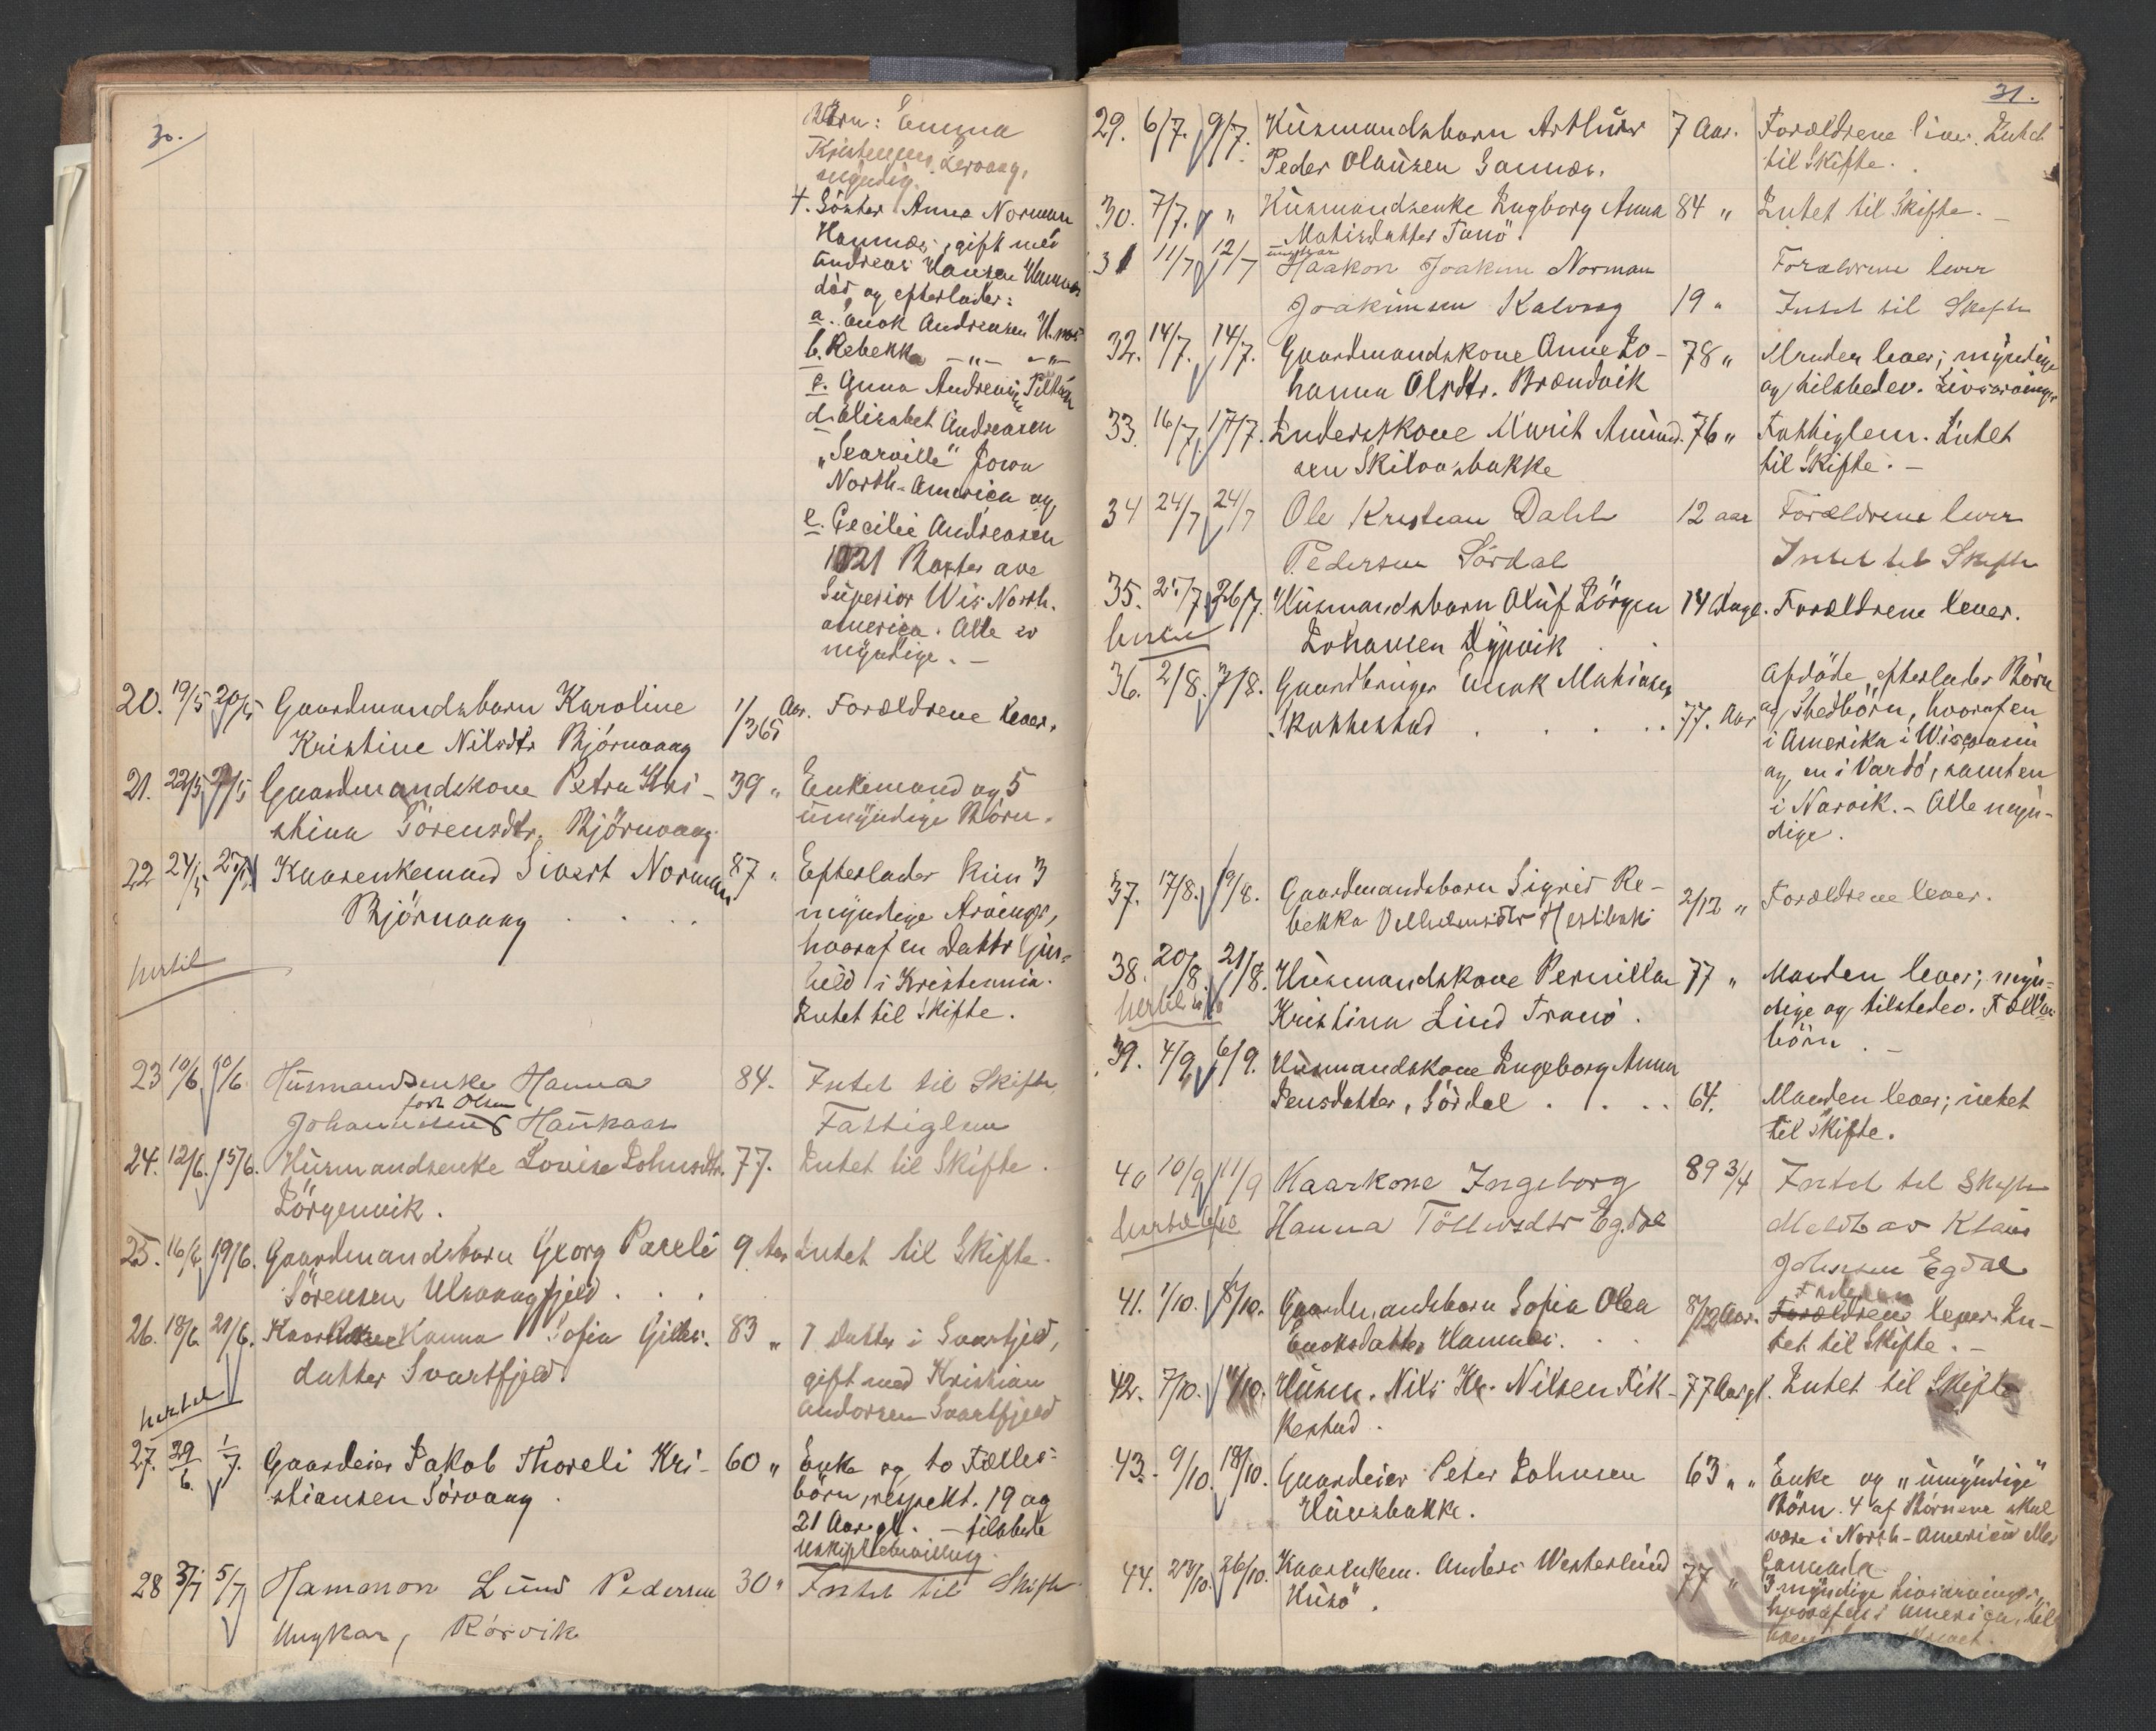 30.
Börn: Emma
Kristensen Lervaag,
myndig.
4. Söster Anna Norman
Hamnes, gift med
Andreas Hansen Hamnes
död og efterlader:
a. Enok Andreasen H.nes
b. Rebekka -"- -"-
c. Anna Andreasen
d. Elisabet Andreasen
"Searville" Jowa
North-America og
e. Cecilie Andreasen
1021 Baxter ave
Superior Wis North-
america. Alle er
myndige. -
20. 19/5 20/5 Gaardmandsbarn Karoline 1/365 Aar. Forældrene lever.
Kristine Nilsdtr Björnvaag
21. 22/5 Gaardmandskone Petra Kri- 39 " Enkemand og 5
stina Sörensdtr. Björnvaag umyndige Börn.
22 24/5 27/5 Kaarenkemand Sivert Norman 87 " Efterlader kun 3
Björnvaag . . . . myndige Arvinger,
hvoraf en Datter
i Kristiania.
hertil
Intet til Skifte.
23 10/6 10/6 Husmandsenke Hanna 84. Intet til Skifte
född Olsen
Johannesens Haukaas Fattiglem
24. 12/6. 15/6. Husmandsenke Lovise Johnsdtr. 77. Intet til Skifte.
Jörgenvik.
25. 16/6 19/6. Gaardmandsbarn Georg Pareli 9 Aar Intet til Skifte.
Sörensen Ulvaagfjeld . . .
26. 18/6. 21/6. Hanna Sofia Gides- 83 " 1 Datter i Svartfjeld,
datter Svartfjeld. gift med Kristian
hertil
Andorsen Svartfjeld
27. 29/6. 1/7. Gaardeier Jakob Thoreli Kri- 60 " Enke og to Fælles-
stiansen Sörvaag. börn, respekt. 19 og
21 Aar gl. - tilstede
Uskiftebevilling.
28 3/7 5/7 Hammon Lund Pedersen 30 " Intet til Skifte
Ungkar, Rörvik
31.
29. 6/7. 9/7. Husmandsbarn Arthur 7 Aar. Forældrene lever. Intet
Peder Olausen Sannes. til Skifte.
30. 7/7. " Husmandsenke Ingborg Anna 84 " Intet til Skifte. -
Matisdatter Tanö.
ungkar
31 11/7 12/7 Haakon Joakim Norman Forældrene lever
Joakimsen Kalvaag 19 " Intet til Skifte
32. 14/7. 14/7. Gaardmandskone Anne Jo- 78 " Manden lever; myndige
hanna Olsdtr. Brændvik og tilstedev. Livsarvinger
33. 16/7. 17/7. Inderstkone Marit Amund- 76 " Fattiglem. Intet
sen Skilvasbakke til Skifte. -
34 24/7 24/7 Ole Kristian Dahl 12 aar Forældrene lever
Pedersen Sördal Intet til Skifte
35. 25/7 26/7. Husmandsbarn Oluf Jörgen 14 Dage. Forældrene lever.
hertil
Johansen Dypvik
36. 2/8. 7/8. Gaardbruger Enok Mathiasen Afdöde efterlader Börn
. . . . 77. Aar og Stedbörn, hvoraf en
i Amerika i Wisconsin
og en i Vardö, samt en
i Narvik. - Alle myn-
dige.
37. 17/8. 19/8. Gaardmandsbarn Sigrid Re- 2/12 " Forældrene lever.
bekka Vilhelmsdtr
38. 20/8. 21/8. Husmandskone Pernilla 77 " Manden lever; myn-
Kristina Lind Tranö. dige og tilstedev. Fælles
börn. -
39. 4/9. 6/9. Husmandskone Ingeborg Anna
Jensdatter, Sördal . . . . 64. Manden lever; intet
til Skifte.
40 10/9 11/9 Kaarkone Ingeborg 89 3/4 Intet til Skifte
Hanna Egdal Meldt av Klaus
Johnsen Egdal
Faderen
41. 1/10. 8/10. Gaardmandsbarn Sofia Olea 8/12 Aar. Forældrene lever. In-
Enoksdatter Hamnes. tet til Skifte. -
42. 7/10. Husm. Nils Kr. Nilsen Fik- 77 Aar gl. Intet til Skifte
kestad.
43. 9/10. 18/10. Gaardeier Peter Johnsen 63 " " Enke og "umyndige"
Hausbakke. Börn. 4 af Börnene skal
være i North-America eller
Canada.
44. 23/10. 26/10. Kaarenkem. Anders Westerlund 77 " 3 myndige Livsarvinger,
Husö. hvoraf en i America,